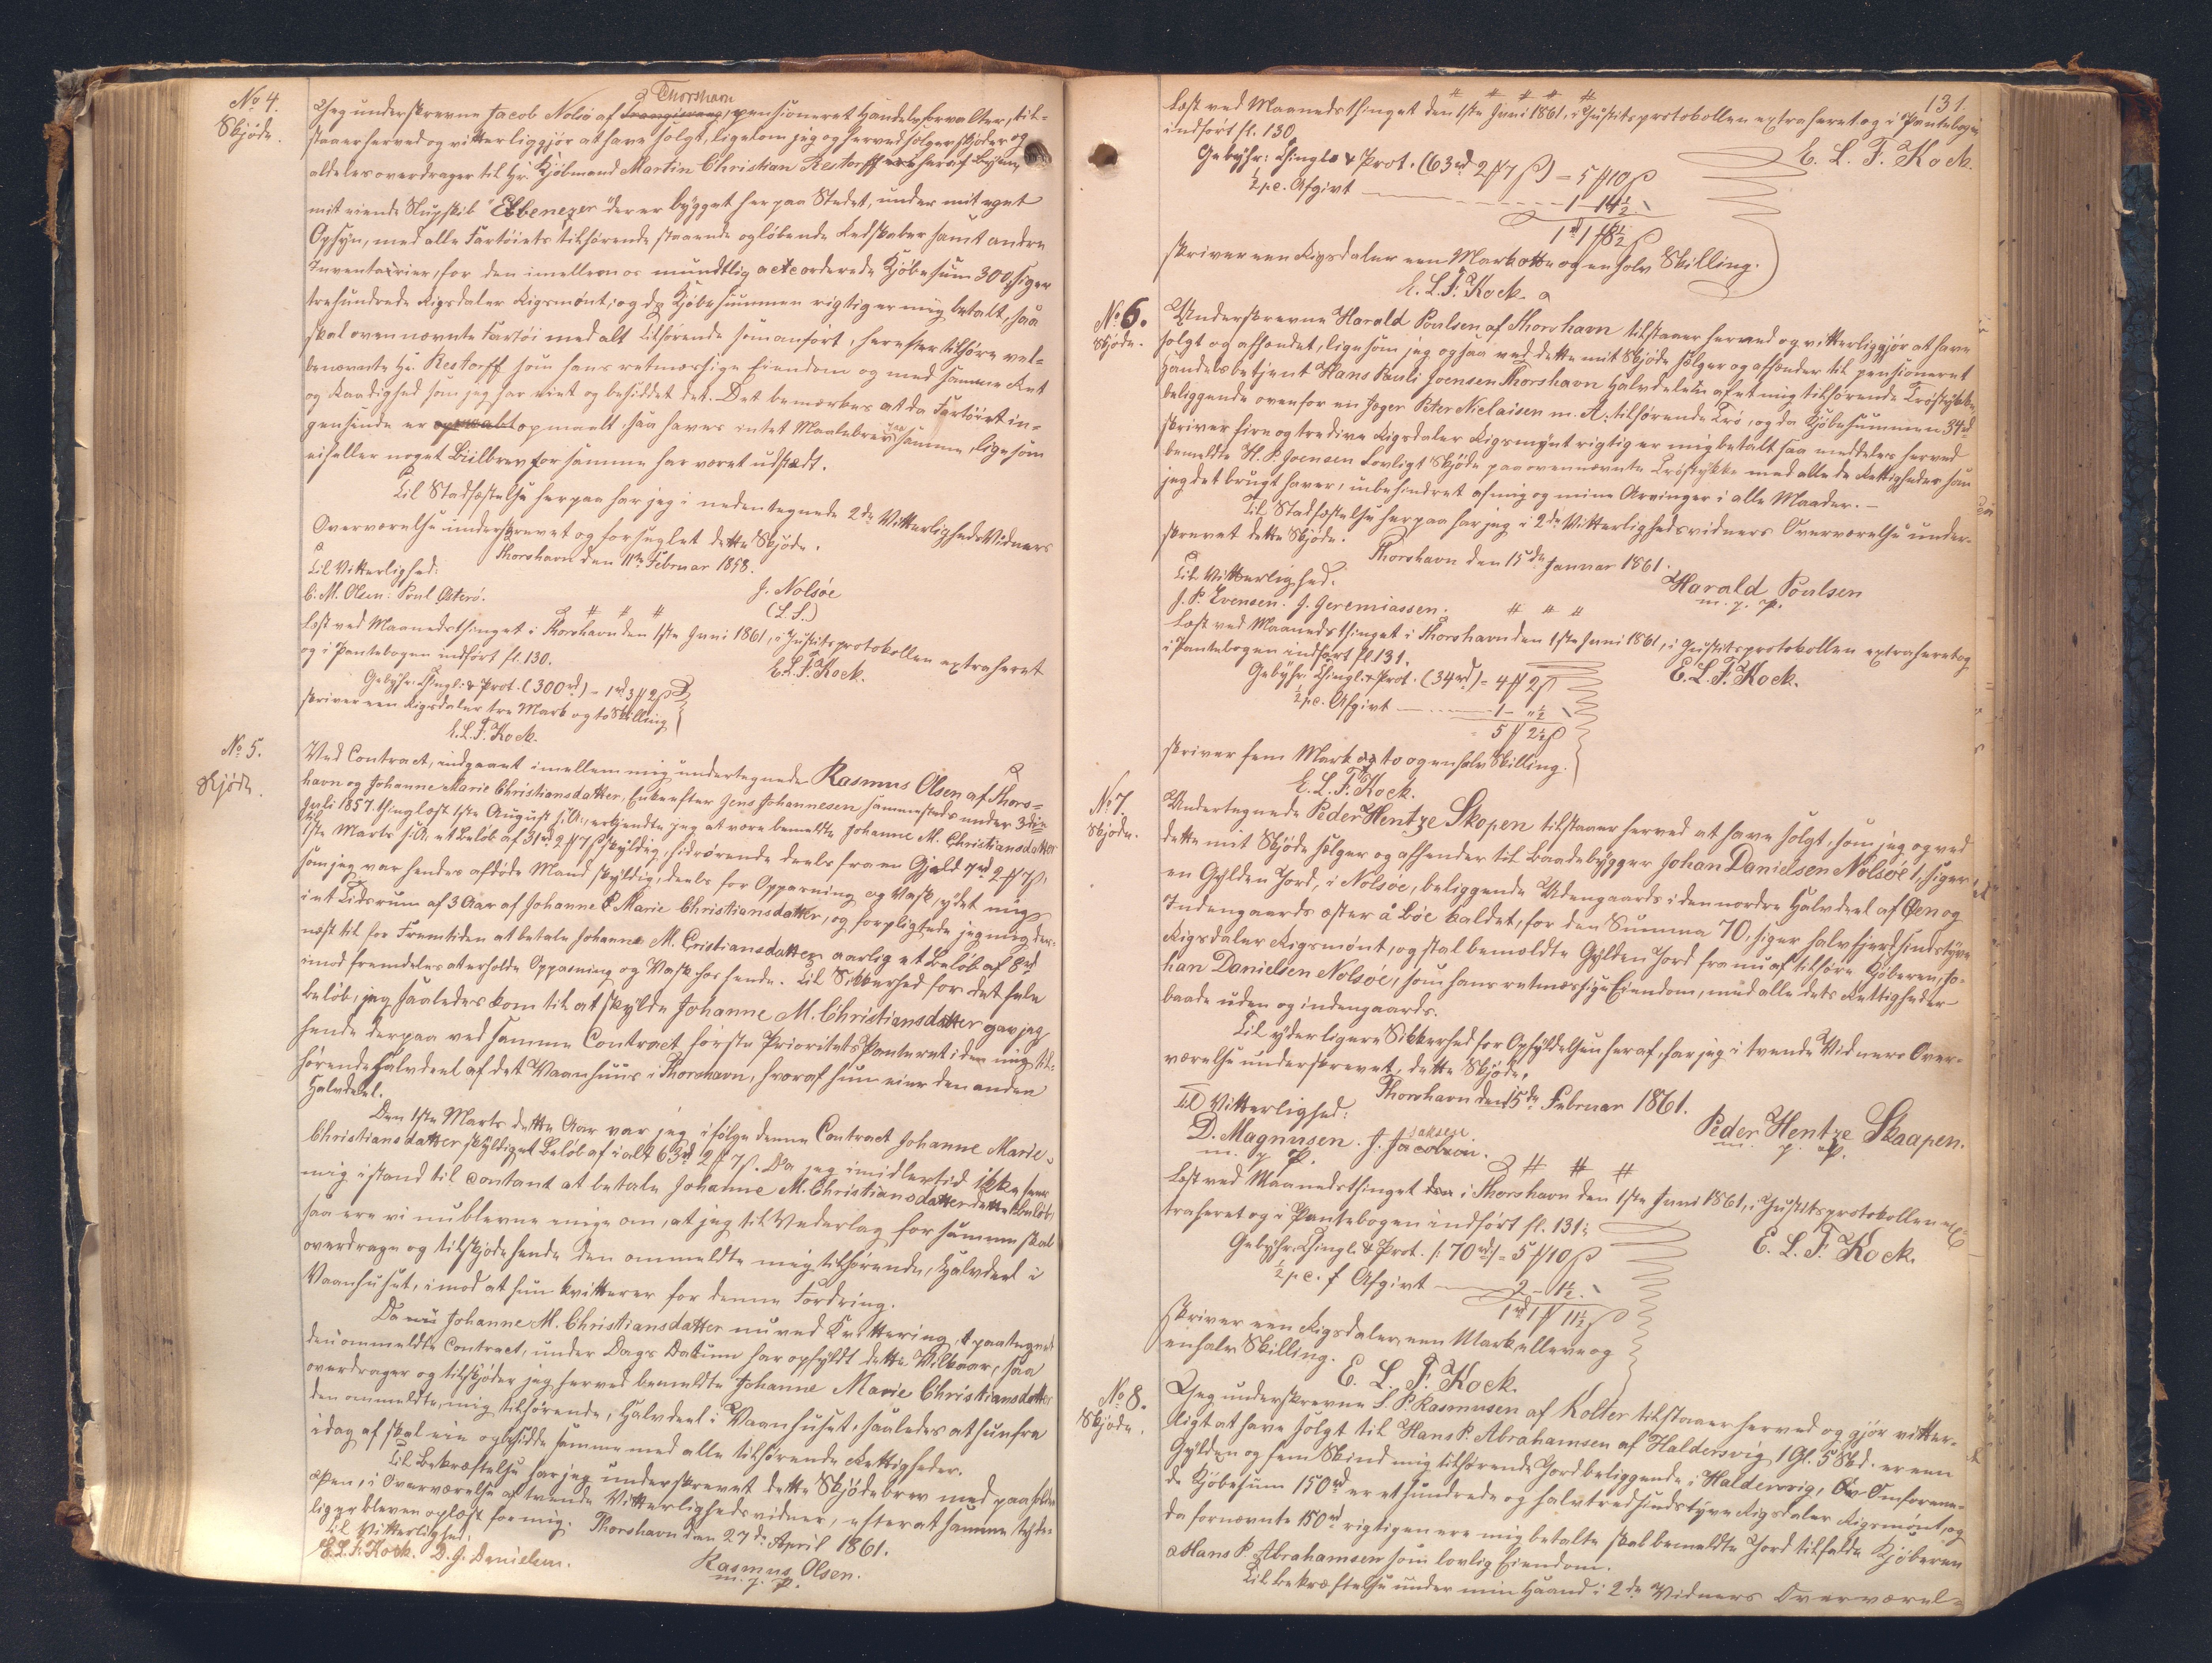 No 4.
Skjøde.
Thorshavn
Jeg underskrevne Jacob Nolsø af Trangisvaag, pensioneret Handelsforvalter, til-
staaer herved og vitterliggjør at have solgt, ligesom jeg og herved sælger skjøder og
aldeles overdrager til Hr. Kjøbmand Martin Christian Restorff her af Byen,
mit eiende Slupskib "Ebenezer" der er bygget her paa Stedet, under mit eget
Opsyn, med alle Fartøiets tilhørende staaende og løbende Redskaber samt andre
Inventarier, for den imellem os mundtlig accorderede Kjøbesum 300, siger
trehundrede Rigsdaler Rigsmønt, og da Kjøbesummen rigtig er mig betalt, saa
skal ovennævnte Fartøi med alt Tilhørende som anført, herefter tilhøre vel-
benævnte Hr. Restorff som hans retmæssige Eiendom og med samme Ret
og Raadighed som jeg har eiet og besiddet det. Det bemærkes at da Fartøiet in-
gensinde er opmaalt, saa haves intet Maalebrev paa samme, ligesom
ei heller noget Biilbrev for samme har været udstædt.
Til Stadfæstelse herpaa har jeg i nedentegnede 2de Vitterligheds Vidners
Overværelse underskrevet og forseglet dette Skjøde.
Thorshavn den 11te Februar 1858.
Til Vitterlighed:
C. M. Olsen. Poul Østerø.
J. Nolsøe
(L.S.)
Læst ved Maanedsthinget i Thorshavn den 1ste Juni 1861, i Justitsprotokollen extraheret
og i Pantebogen indført fl. 130.
E. L. F. Kock.
Gebyhr: Thingl: & Prot. (300rd) = 1rd 3 # 2 ß
skriver een Rigsdaler tre Mark og to Skilling
E. L. F. Kock.
No 5.
Skjøde.
Ved Contract, indgaaet imellem mig undertegnede Rasmus Olsen af Thors-
havn og Johanne Marie Christiansdatter, Enke efter Jens Johannesen sammesteds under 3die
Juli 1857 thinglæst 1ste August s. A., erkjendte jeg at være bemeldte Johanne M. Christiansdatter
til 1ste Marts s. A. et Beløb af 31rd 2 # 7 ß skyldig, hidrørende deels fra en Gjæld 7rd 2 # 7 ß,
som jeg var hendes afdøde Mand skyldig, deels for Opparning og Vask, ydet mig
i et Tidsrum af 3 Aar af Johanne Marie Christiansdatter, og forpligtede jeg mig der-
næst til for Fremtiden at betale Johanne M. Cristiansdatter aarlig et Beløb af 8rd
imod fremdeles at erholde Oppasning og Vask hos hende. Til Sikkerhed for det hele
Beløb, jeg saaledes kom til at skylde Johanne M. Christiansdatter gav jeg
hende derpaa ved samme Contract første Prioritets Panteret i den mig til-
hørende Halvdeel af det Vaanhuus i Thorshavn, hvoraf hun eier den anden
Halvdeel.
Den 1ste Marts dette Aar var jeg ifølge denne Contract Johanne Marie
Christiansdatter skyldig et Beløb af i alt 63rd 2 # 7 ß. Da jeg imidlertid ikke seer
mig istand til contant at betale Johanne M. Christiansdatter dette Beløb,
saa ere vi nu blevne enige om, at jeg til Vederlag for samme skal
overdrage og tilskjøde hende den ommeldte mig tilhørende, Halvdeel i
Vaanhuset, imod at hun kvitterer for denne Fordring.
Da nu Johanne M. Christiansdatter nu ved Kvittering, paategnet
den ommeldte Contract, under Dags Datum har opfyldt dette Vilkaar, saa
overdrager og tilskjøder jeg herved bemeldte Johanne Marie Christiansdatter
den ommeldte, mig tilhørende, Halvdeel i Vaanhuset, saaledes at hun fra
idag af skal eie og besidde samme med alle tilhørende Rettigheder.
Til Bekræftelse har jeg underskrevet dette Skjødebrev med paaholden
Pen, i Overværelse af tvende Vitterlighedsvidner, efterat samme tyde-
lig er bleven oplæst for mig. Thorshavn den 27de April 1861.
Til Vitterlighed:
E. L. F. Kock. D. J. Danielsen.
Rasmus Olsen.
m. f. P.
131.
Læst ved Maanedsthinget den 1ste Juni 1861, i Justitsprotokollen extraheret og i Pantebogen
indført fl. 130.
E. L. F. Kock.
Gebyhr: Thingl. & Prot. (63rd 2 # 7 ß) = 5 # 10 ß
½ pc. Afgivt 1 - 14½
1rd 1 # 8½ ß
skriver een Rigsdaler een Mark otte og en halv Skilling.
E. L. F. Kock.
No 6.
Skjøde.
Underskrevne Harald Poulsen af Thorshavn tilstaaer herved og vitterliggjør at have
solgt og afhændet, ligesom jeg ogsaa ved dette mit Skjøde sælger og afhænder til pensioneret
Handelsbetjent Hans Pauli Joensen Thorshavn Halvdelen af et mig tilhørende Trøstykke
beliggende ovenfor en Joger Peter Nielaisen m. A. tilhørende Trø, og da Kjøbesummen 34rd
skriver fire og tredive Rigsdaler Rigsmynt rigtig er mig betalt saa meddeles herved
bemeldte H. P. Joensen Lovligt Skjøde paa ovennævnte Trøstykke med alle de Rettigheder som
jeg det brugt haver, uibehindret af mig og mine Arvinger i alle Maader.-
Til Stadfæstelse herpaa har jeg i 2de Vitterlighedsvidners Overværelse under-
skrevet dette Skjøde.
Thorshavn den 15de Januar 1861.
Til Vitterlighed.
J. P. Evensen. J. Jeremiassen.
Harald Poulsen
m. f. P.
Læst ved Maanedsthinget i Thorshavn den 1ste Juni 1861, i Justitsprotokollen extraheret og
i Pantebogen indført fl. 131.
E. L. F. Kock.
Gebyhr. Thingl. & Prot. (34rd) = 4 # 2 ß
½ pc. Afgivt 1 - " ½
5 # 2½ ß
skriver fem Mark og to og en halv Skilling.
E. L. F. Kock.
No 7.
Skjøde.
Undertegnede Peder Hentze Skopen tilstaaer herved at have solgt, som jeg og ved
dette mit Skjøde sælger og afhender til Baadebygger Johan Danielsen Nolsøe 1, siger
en Gylden Jord, i Nolsøe, beliggende Udengaards i den nordre Halvdeel af Øen og
Indengaards øster å Bøe kaldet, for den Summa 70, siger halvfjerdsindstyve
Rigsdaler Rigsmønt, og skal bemeldte Gylden Jord fra nu af tilhøre Kjøberen, Jo-
han Danielsen Nolsøe, som hans retmæssige Eiendom, med alle dets Rettigheder
baade uden og indengaards.
Til yderligere Sikkerhed for Opfyldelsen heraf, har jeg i tvende Vidners Over-
værelse underskrevet, dette Skjøde.
Thorshavn den 15de Februar 1861.
Til Vitterlighed:
D. Magnusen. J. Jacobsen.
m. f. P.
Peder Hentze Skaapen.
m. f. P.
Læst ved Maanedsthinget i Thorshavn den 1ste Juni 1861, i Justitsprotokollen ex-
traheret og i Pantebogen indført fl. 131.
E. L. F. Kock.
Gebyhr: Thingl. & Prot. (: 70rd :) = 5 # 10 ß
½ pc. f Afgivt 2 - 1½
1rd 1 # 11½ ß
skriver een Rigsdaler, een Mark elleve og
en halv Skilling.
E. L. F. Kock.
No 8.
Skjøde.
Jeg underskrevne S. P. Rasmusen af Kolter tilstaaer herved og gjør vitter-
ligt at have solgt til Hans P. Abrahamsen af Haldersvig 1 Gl. 5 Skd. er een
Gylden og fem Skind mig tilhørende Jord beliggende i Haldersvig, Omforene-
de Kjøbesum 150rd er et hundrede og halvtredsindstyve Rigsdaler Rigsmønt, og
da fornævnte 150rd rigtigen ere mig betalte skal bemeldte Jord tilfalde Kjøberen
Hans P. Abrahamsen som lovlig Eiendom.
Til Bekræftelse under min Haand i 2de Vidners Overværel-